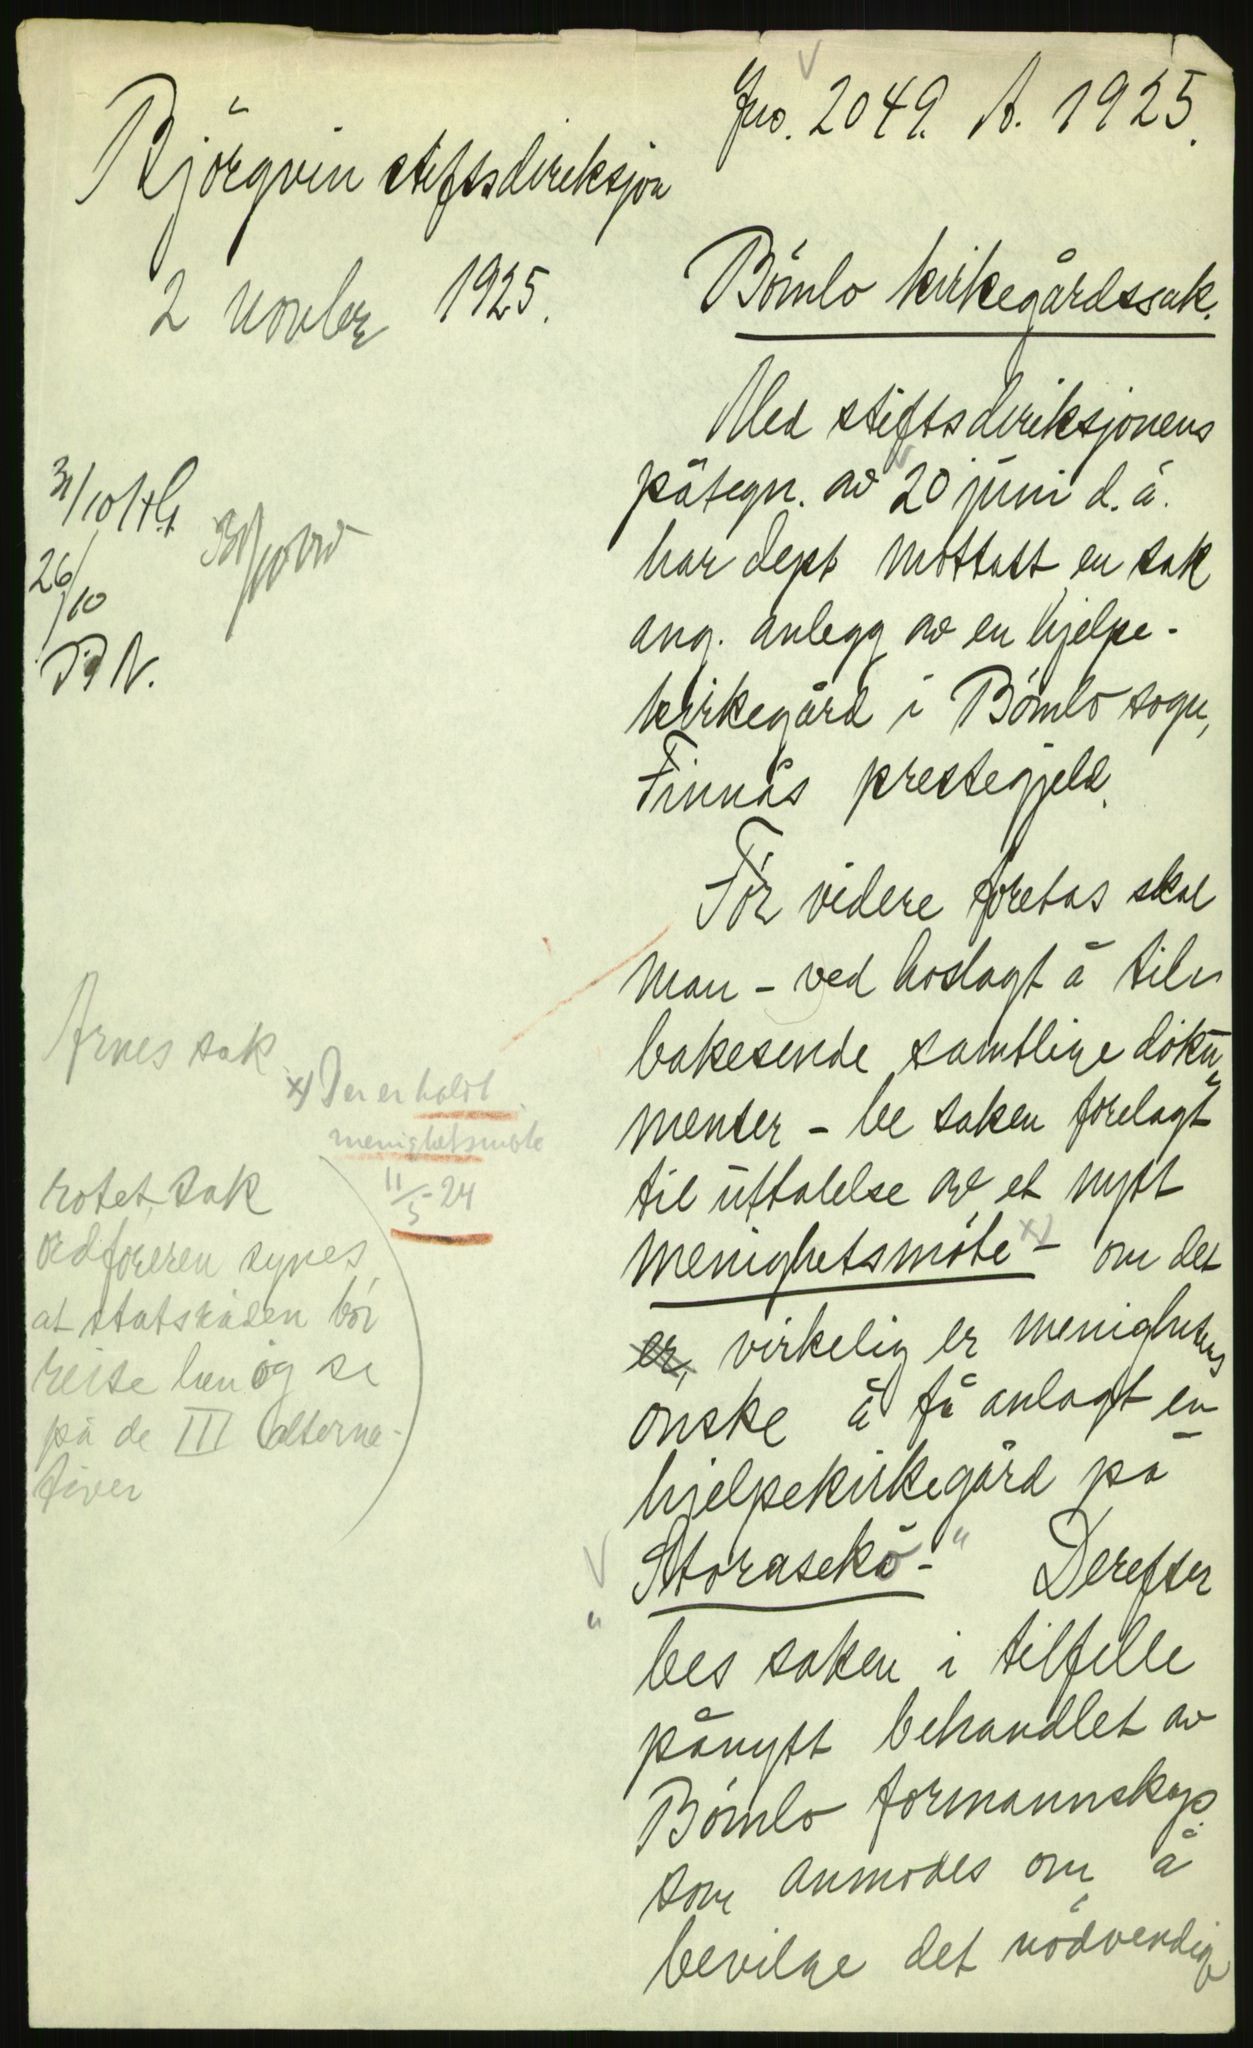 Jno. 2049. A. 1925.
Björgvin stiftsdireksjon
2 novbr 1925.
Bömlo kirkegårdssak.
Med stiftsdireksjonens
påtegn. av 20 juni d. å.
har dept mottatt en sak
ang. anlegg av en hjelpe-
kirkegård i Bömlo sogn,
Finnås prestegjeld.
För videre foretas skal
man - ved hoslagt å til-
bakesende samtlige doku-
menter - be saken forelagt
til uttalelse av et nytt
menighetsmöte x) - om det
er, virkelig er menighetens
önske å få anlagt en
hjelpekirkegård på
"Storasekö-" Derefter
bes saken i tilfelle
pånytt behandlet av
Bömlo formannskap
som anmodes om å
bevilge det nödvendige
31/10
26/10
Arnes sak
x) Der er holdt
menighetsmöte
11/5-24
rotet sak
ordföreren synes
at statsråden bör
reise hen og se
på de III alterna-
tiver